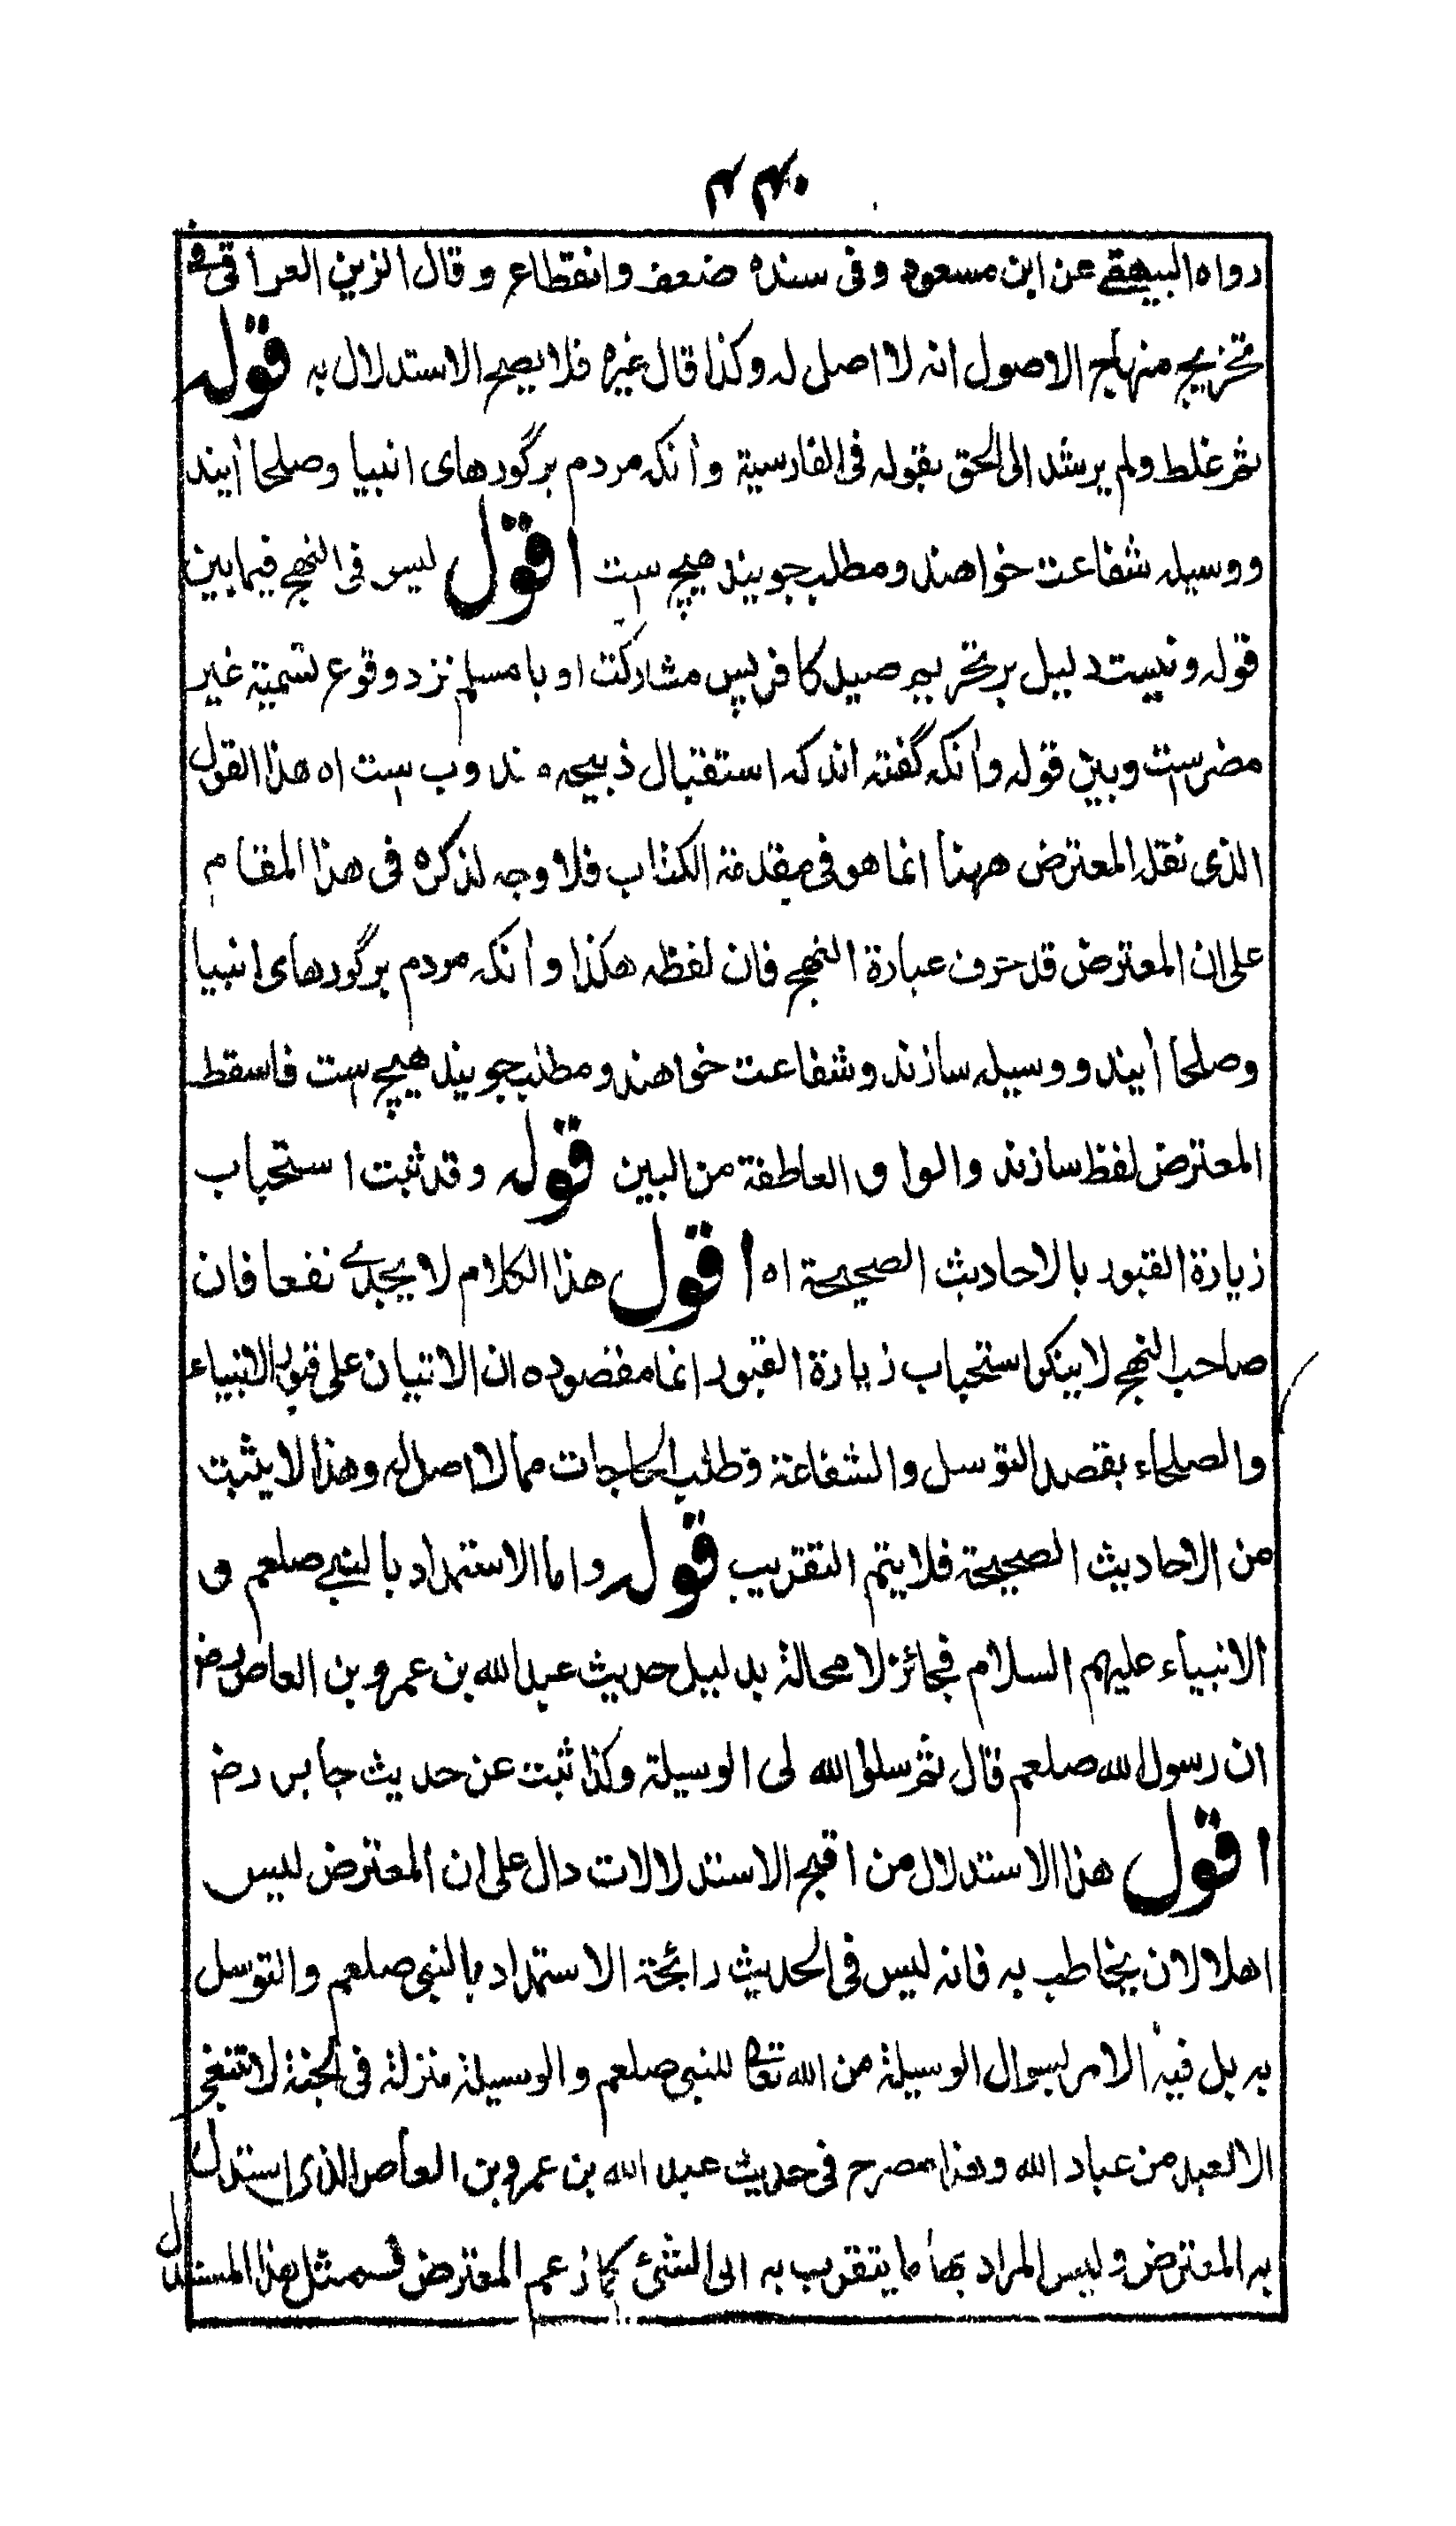 ۴۴
رواه البيهقے عن ابن مسعود وفى سنده ضعف وانقطاع وقال الزين العراقى فى
تخريج منهاج الاصول انه لا اصل له وكذا قال غيره فلا يصح الاستدلال به قوله
ثم غلط ولم يرشد الى الحق بقوله فى الفارسية وآنكه مردم برگورهاى انبيا وصلحا آيند
ووسيله شفاعت خواهند ومطلب جويند هيچ ست اقول ليس فى النهج فيما بين
قوله ونيست دليل بر تحريم صيد كافر پس مشاركت او با مسلم نزد وقوع تسمية غير
مضر ست وبين قوله وآنكه گفته اند كه استقبال ذبيحه مندوب ست اه هذا القول
الذى نقله المعترض ههنا انما هو فى مقدمة الكتاب فلا وجه لذكره فى هذا المقام
على ان المعترض قد حرف عبارة النهج فان لفظه هكذا وآنكه مردم برگورهاى انبيا
وصلحا آيند ووسيله سازند وشفاعت خواهند ومطلب جويند هيچ ست فاسقط
المعترض لفظ سازند والواو العاطفة من البين قوله وقد ثبت استحباب
زيارة القبور بالاحاديث الصحيحة اه اقول هذا الكلام لا يجدے نفعا فان
صاحب النهج لا ينكر استحباب زيارة القبور انما مقصوده ان الاتيان على قبور الانبياء
والصلحاء بقصد التوسل والشفاعة وطلب الحاجات مما لا اصل له وهذا لا يثبت
من الاحاديث الصحيحة فلا يتم التقريب قوله واما الاستمداد بالنبے صلعم و
الانبياء عليهم السلام فجائز لا محالة بدليل حديث عبد الله بن عمرو بن العاص رض
ان رسول الله صلعم قال ثم سلوا الله لى الوسيلة وكذا ثبت عن حديث جابر رض
اقول هذا الاستدلال من اقبح الاستدلالات دال على ان المعترض ليس
اهلا لان يخاطب به فانه ليس فى الحديث رائحة الاستمداد بالنبى صلعم والتوسل
به بل فيه الامر بسوال الوسيلة من الله تعالى للنبى صلعم والوسيلة منزلة فى الجنة لا تنبغى
الا لعبد من عباد الله وهذا مصرح فى حديث عبد الله بن عمرو بن العاص الذى استدل
به المعترض وليس المراد بها ما يتقرب به الى الشئ كما زعم المعترض فمثل هذا المستدل